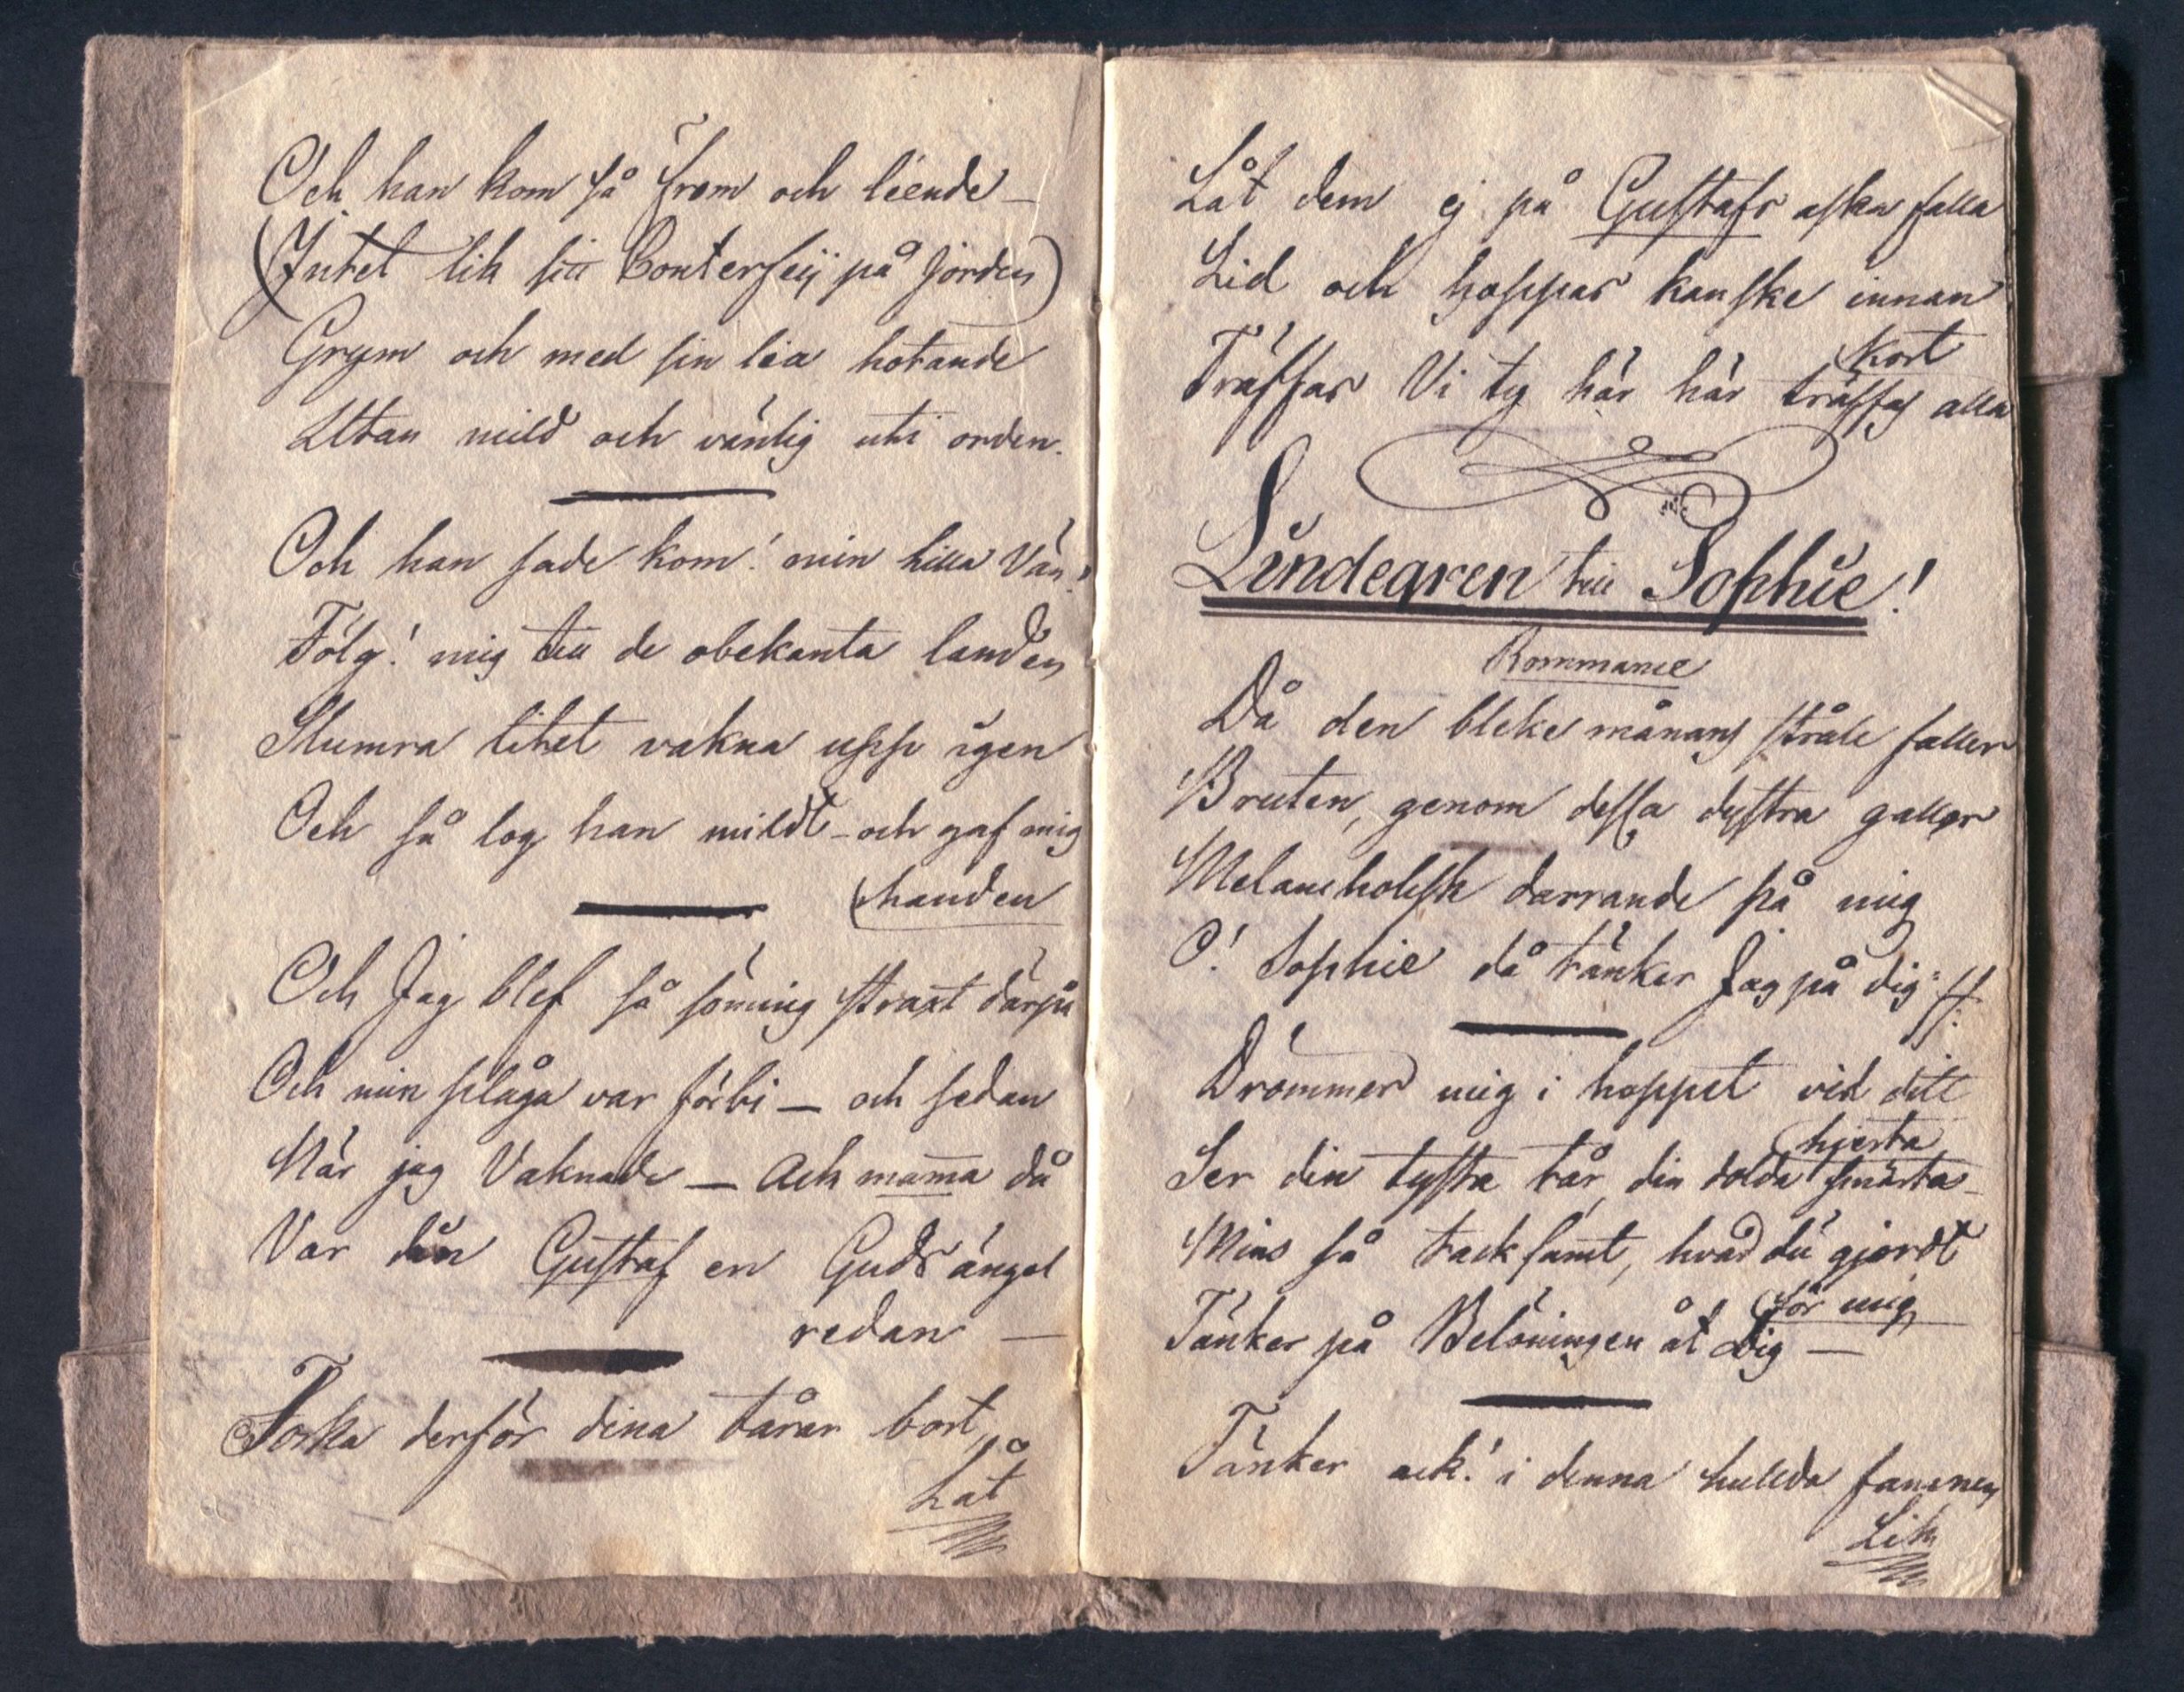 Och han kom så from och léende —
(Intet lik sitt Conterfeij på jorden)
Grym och med sin lia hotande
Utan mild och vänlig uti orden.
Och han sade kom! min lilla Vän!
Följ! mig till de obekanta landen
Slumra litet vakna upp igen
Och så log han mildt – och gaf mig
(handen
Och Jag blef så sömnig straxt därpå
Och min plåga var förbi — och sedan
När jag Vaknade — Ach mam̄a då
Var din Gustaf en Guds ängel
redan —
Torka derför dina tårar bort,
Låt
Låt dem ej på Gustafs aska falla
Lid och hoppas kanske innan
(kort
Träffas Vi ty här här träffas alla
Lindegren till Sophie!
Rommance
Då den bleke månans stråle faller
Bruten, genom dessa dystra galler
Melancholisk darrande på mig
O! Sophie då tänker Jag på dig ://:
Drömmer mig i hoppet vid ditt
(hjerta
Ser din tysta tår, din dolda smärta –
Mins så tacksamt, hvad du gjordt
(för mig
Tänker på Belöningen åt Dig —
Tänker ack! i denna hulda famnen
Lik